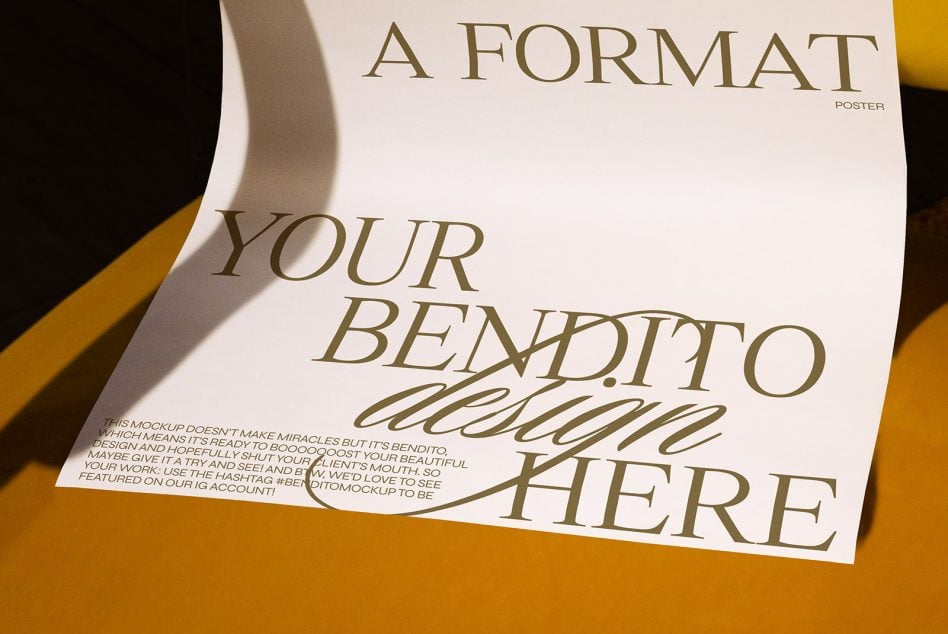 A FORMAT
POSTER
YOUR
BENDITO
design
HERE
THIS MOCKUP DOESN'T MAKE MIRACLES BUT IT'S BENDITO,
WHICH MEANS IT'S READY TO BOOOOOOOST YOUR BEAUTIFUL
DESIGN AND HOPEFULLY SHUT YOUR CLIENT'S MOUTH. SO
MAYBE GIVE IT A TRY AND SEE! AND BTW, WE'D LOVE TO SEE
YOUR WORK: USE THE HASHTAG #BENDITOMOCKUP TO BE
FEATURED ON OUR IG ACCOUNT!